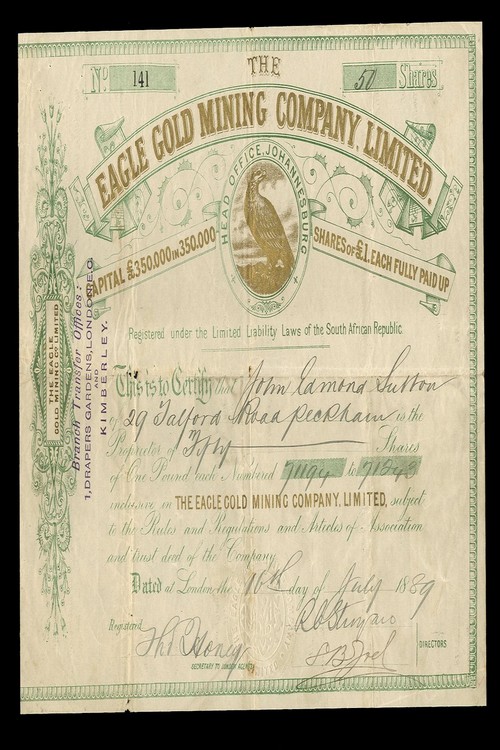 THE
No 141
50 Shares
EAGLE GOLD MINING COMPANY, LIMITED.
HEAD OFFICE, JOHANNESBURG
CAPITAL £350,000 IN 350,000
SHARES OF £1. EACH FULLY PAID UP
Registered under the Limited Liability Laws of the South African Republic.
This is to Certify that John Edmond Sutton
of 29 Talford Road Peckham is the
Proprietor of Fifty Shares
of One Pound each Numbered 71194 to 71243
inclusive in THE EAGLE GOLD MINING COMPANY, LIMITED, subject
to the Rules and Regulations and Articles of Association
and trust deed of the Company
Dated at London the 10th day of July 1889
Registered
SECRETARY TO LONDON AGENCY
DIRECTORS
THE EAGLE
GOLD MINING COY LIMITED
Branch Transfer Offices:
1, DRAPERS GARDENS, LONDON E.C.
AND
KIMBERLEY.